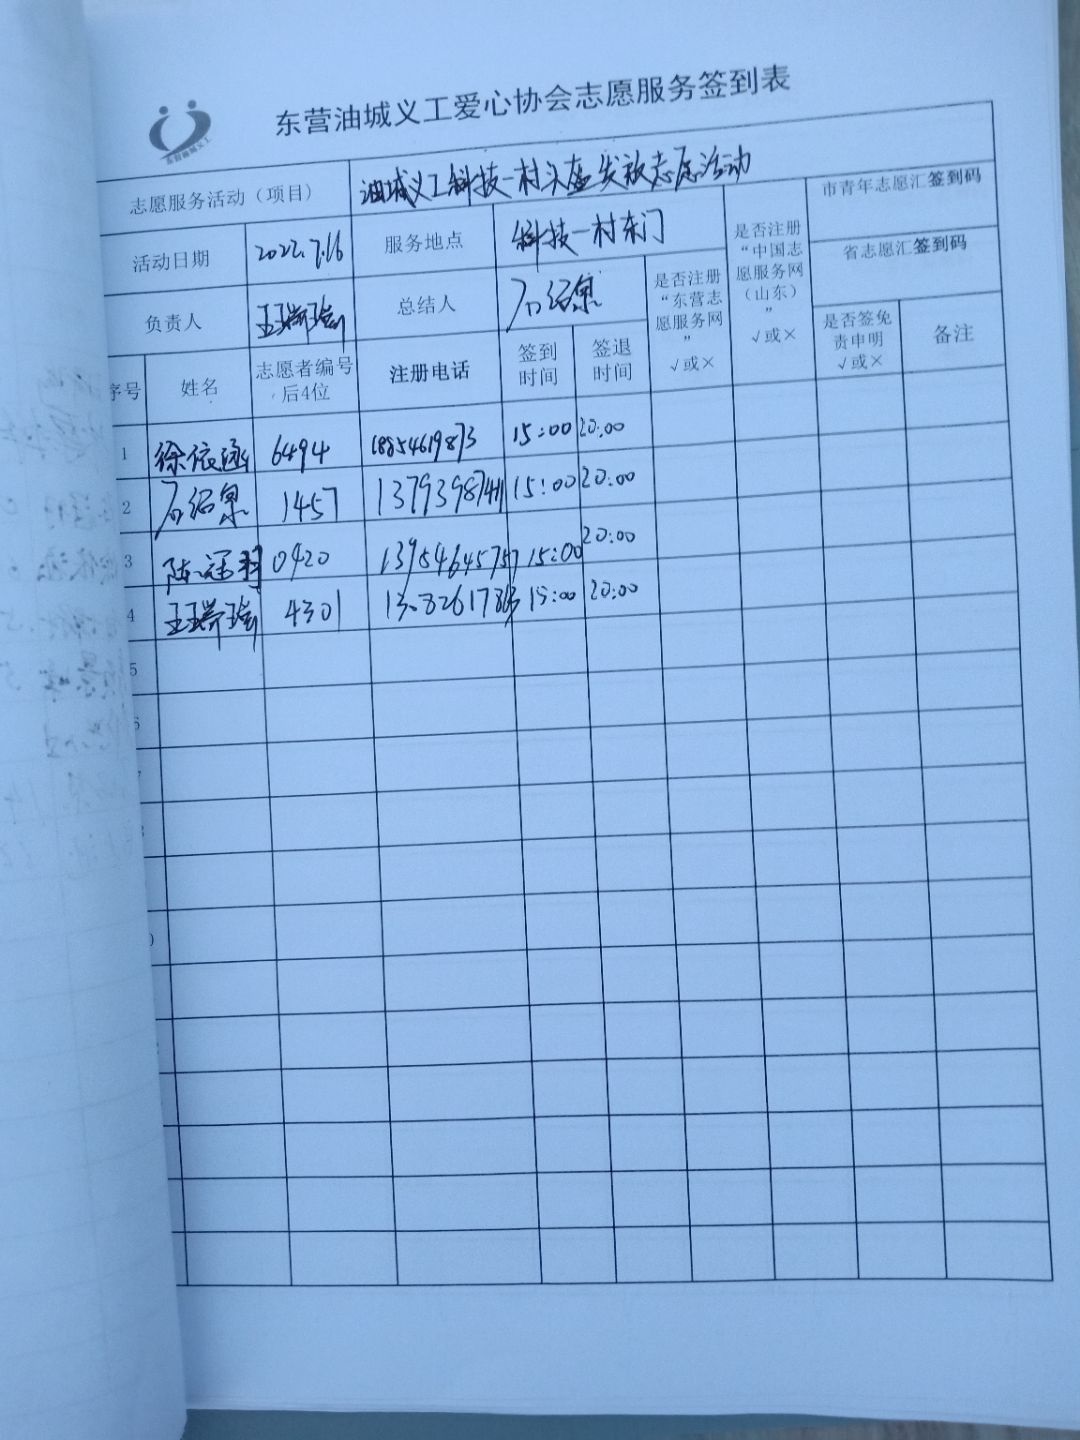 东营油城义工爱心协会志愿服务签到表
东营油城义工
志愿服务活动（项目） 油城义工科技一村头盔发放志愿活动
活动日期 2022.7.16 服务地点 科技一村东门
负责人 王瑞瑜 总结人 石绍泉
是否注册“东营志愿服务网” √或×
是否注册“中国志愿服务网（山东）” √或×
市青年志愿汇签到码
省志愿汇签到码
序号 姓名 志愿者编号后4位 注册电话 签到时间 签退时间 是否签免责申明 √或× 备注
1 徐依涵 6494 18854619873 15:00 20:00
2 石绍泉 1457 15:00 20:00
3 陈冠羽 0420 13954645757 15:00 20:00
4 王瑞瑜 4301 15:00 20:00
5
6